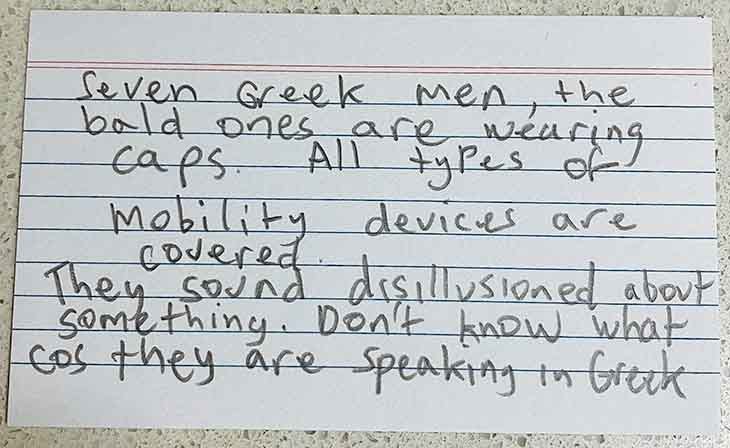 Seven Greek men, the
bald ones are wearing
caps. All types of
mobility devices are
covered.
They sound disillusioned about
something. Don't know what
cos they are speaking in Greek